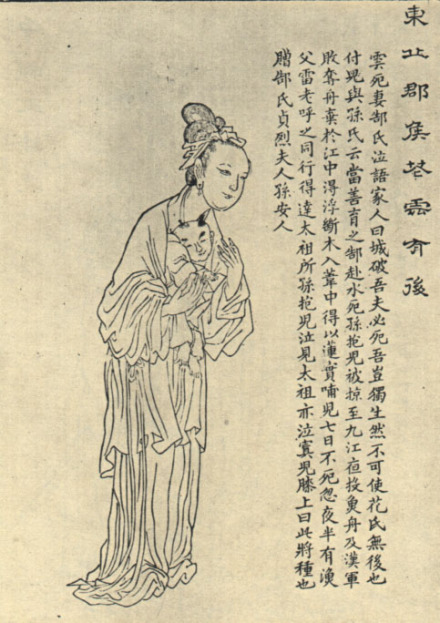 東丘郡侯花雲有後
雲死妻郜氏泣語家人曰城破吾夫必死吾豈獨生然不可使花氏無後也
付兒與孫氏云當善育之郜赴水死孫抱兒被掠至九江亱投魚舟及漢軍
敗奪舟棄於江中得浮斷木入葦中得以蓮實哺兒七日不死忽夜半有漁
父雷老呼之同行得達太祖所孫抱兒泣見太祖亦泣寘兒膝上曰此將種也
贈郜氏貞烈夫人孫安人